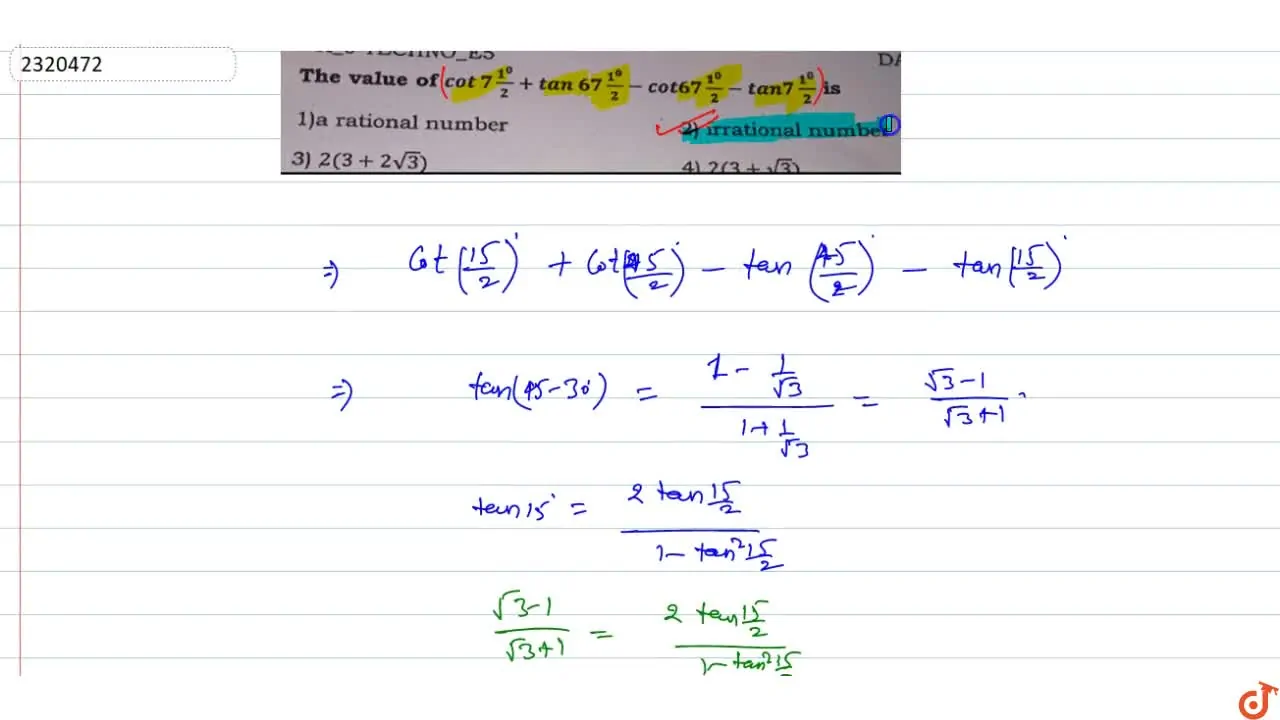 2320472
TECHNO_E5
DA
The value of (cot 7 1°/2 + tan 67 1°/2 − cot67 1°/2 − tan7 1°/2) is
1)a rational number 2) irrational number
3) 2(3 + 2√3) 4) 2(3 + √3)
⇒) Cot(15/2)° + Cot(45/2)° − tan(45/2)° − tan(15/2)°
⇒) tan(45-30°) = (1 − 1/√3)/(1 + 1/√3) = (√3-1)/(√3+1)
tan15° = (2 tan 15/2)/(1 − tan² 15/2)
(√3-1)/(√3+1) = (2 tan 15/2)/(1 − tan² 15/2)